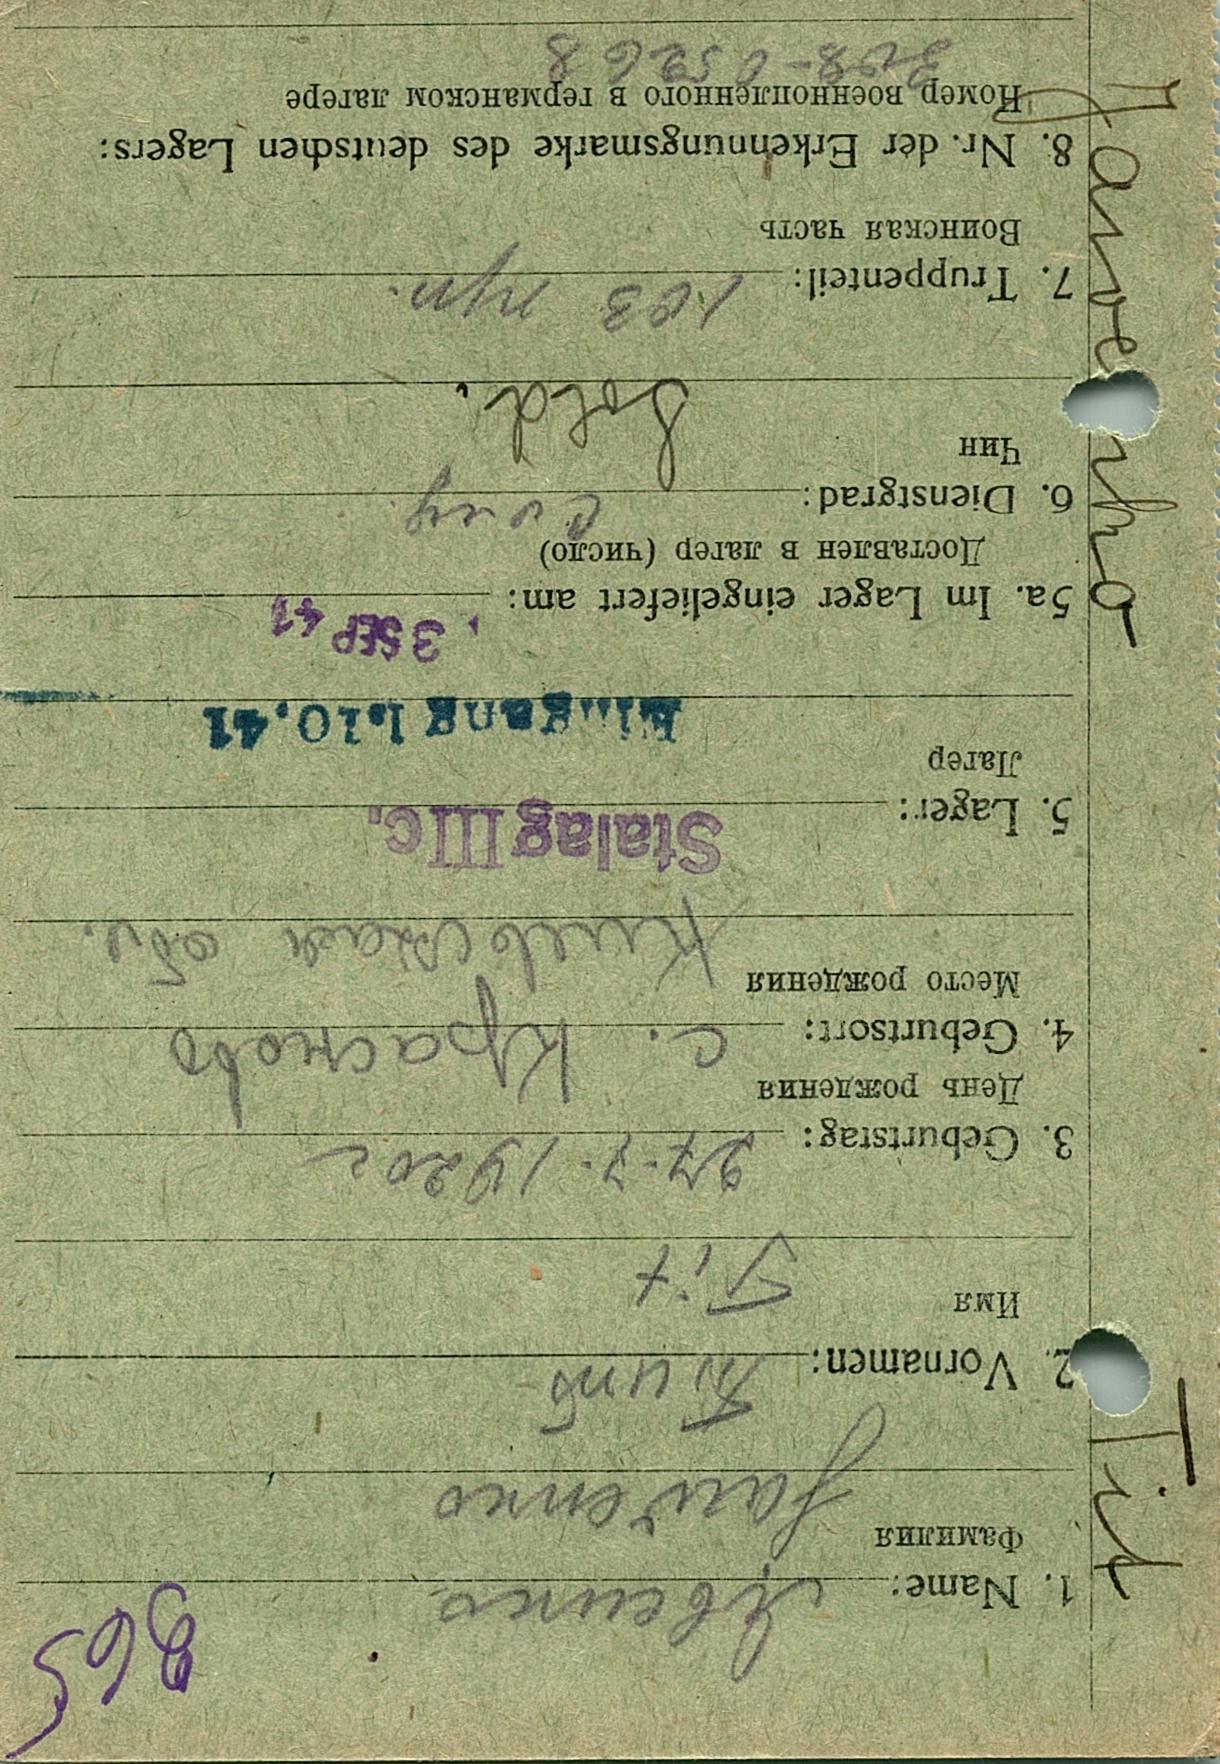 865
1. Name: Явенко
Фамилия Jawenko
2. Vornamen: Титъ
Имя Tit
3. Geburtstag: 27.7.1920 г
День рождения
4. Geburtsort: с. Красково
Место рождения Киевская обл.
5. Lager: Stalag III C.
Лагер
Eingang 1.10.41
5a. Im Lager eingeliefert am: 3 SEP 41
Доставлен в лагер (число)
6. Dienstgrad:
Чин Sold.
7. Truppenteil: 103
Воинская часть
8. Nr. der Erkennungsmarke des deutschen Lagers:
Номер военнопленного в германском лагере
Tit Jawenko